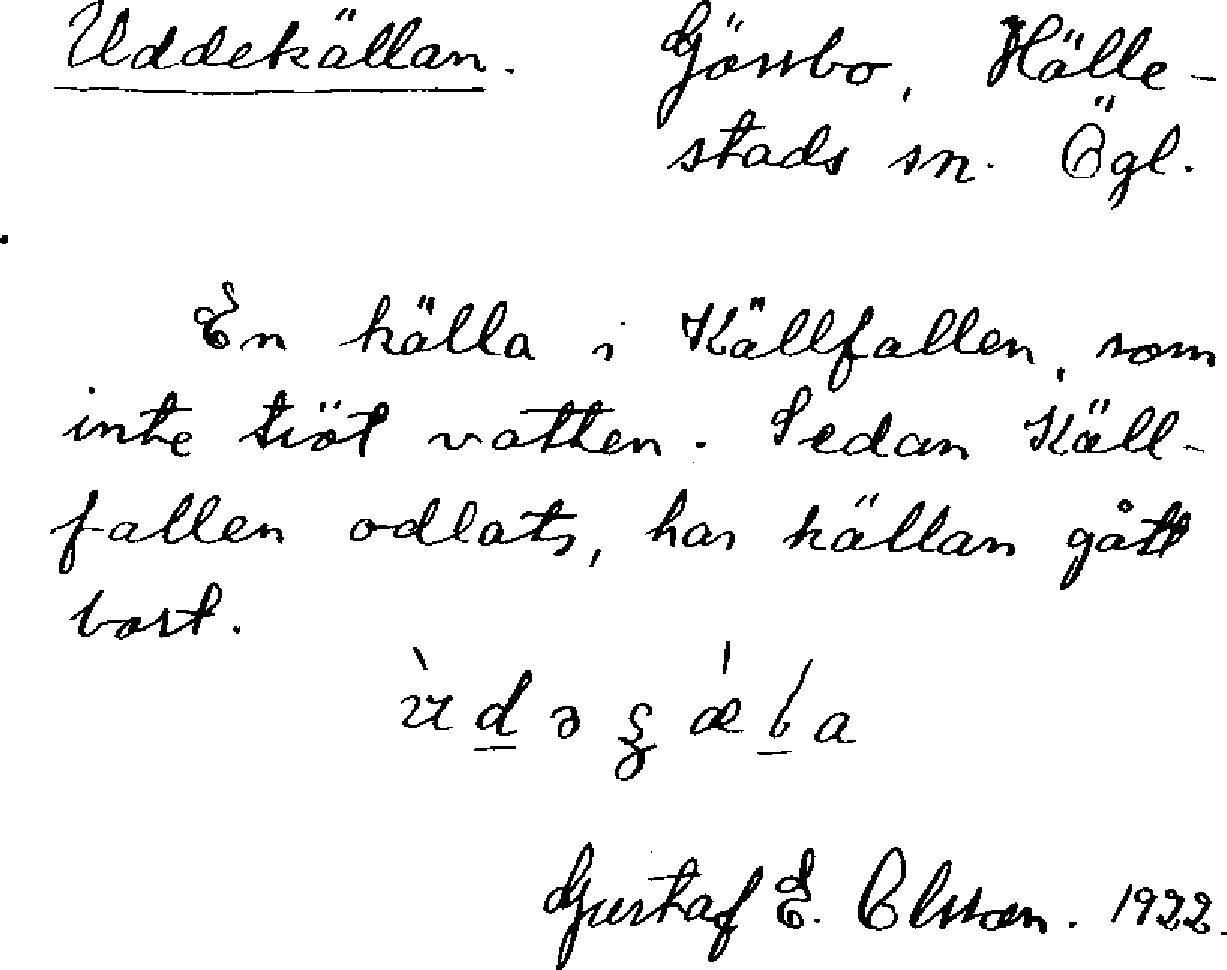 Uddekällan. Gössbo, Hälle-
stads sn. Ögl.
En källa i Källfallen, som
inte tröt vatten. Sedan Käll-
fallen odlats, har källan gått
bort.
Gustaf E. Olsson. 1922.